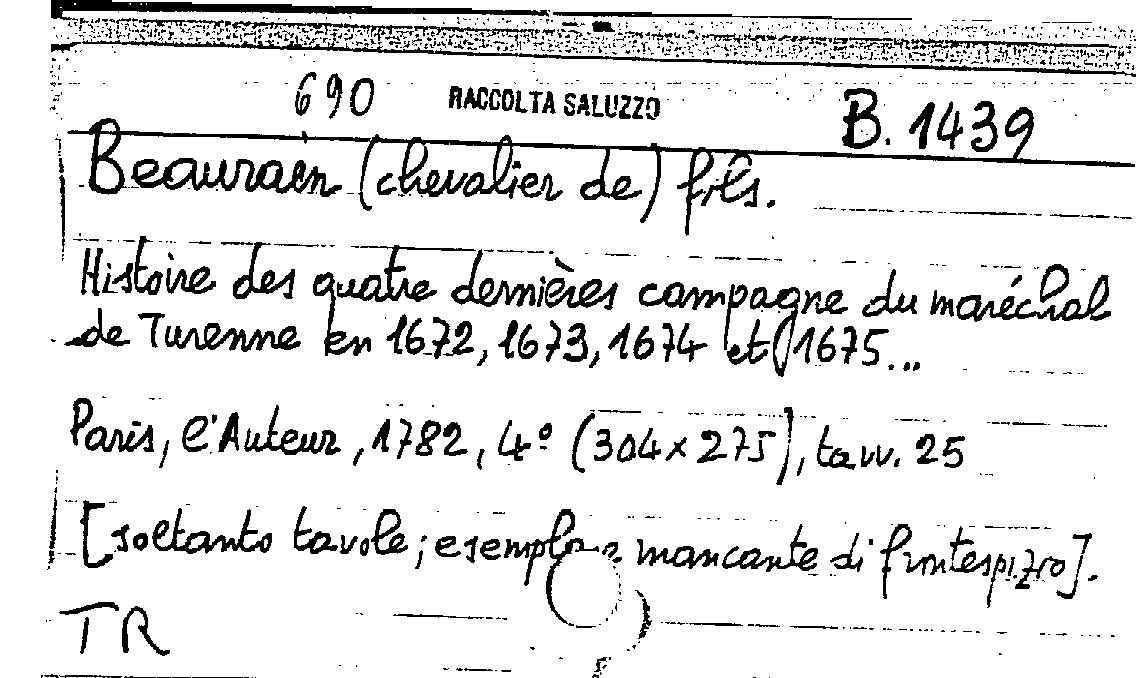 690 RACCOLTA SALUZZO B. 1439
Beaurain (chevalier de) fils.
Histoire des quatre dernières campagne du maréchal
de Turenne en 1672, 1673, 1674 et 1675...
Paris, l'Auteur, 1782, 4º (304 x 275), tavv. 25
[soltanto tavole; mancante di frontespizio].
TR